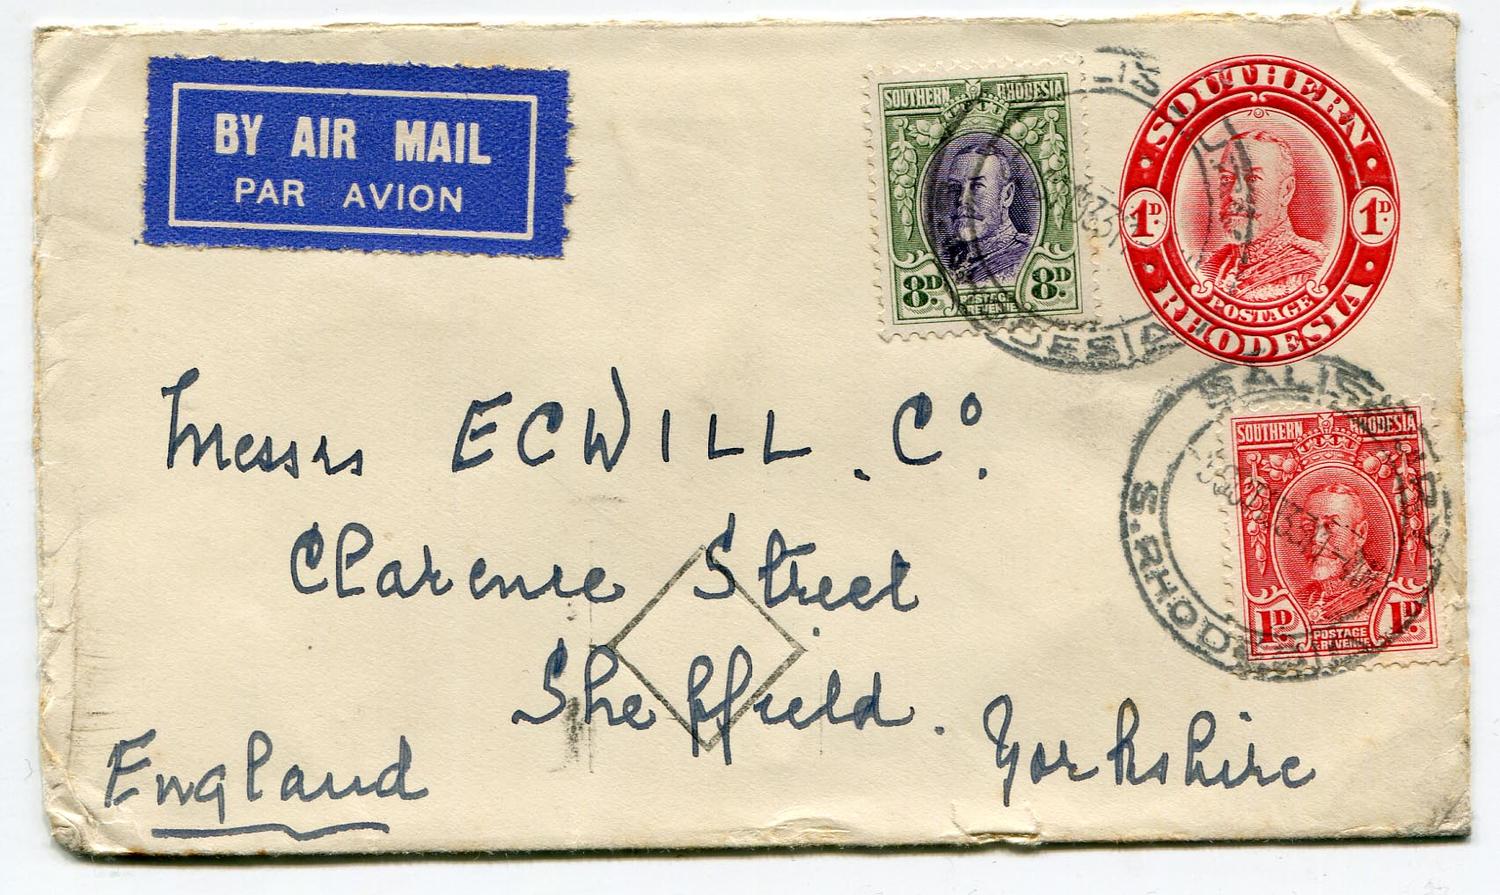 BY AIR MAIL
PAR AVION
SOUTHERN RHODESIA
8D. 8D.
POSTAGE
& REVENUE
SOUTHERN
1D. 1D.
POSTAGE
RHODESIA
SALIS
S. RHODESIA
SOUTHERN RHODESIA
1D. 1D.
POSTAGE
& REVENUE
Messrs ECWILL. Co.
Clarence Street
Sheffield. Yorkshire
England